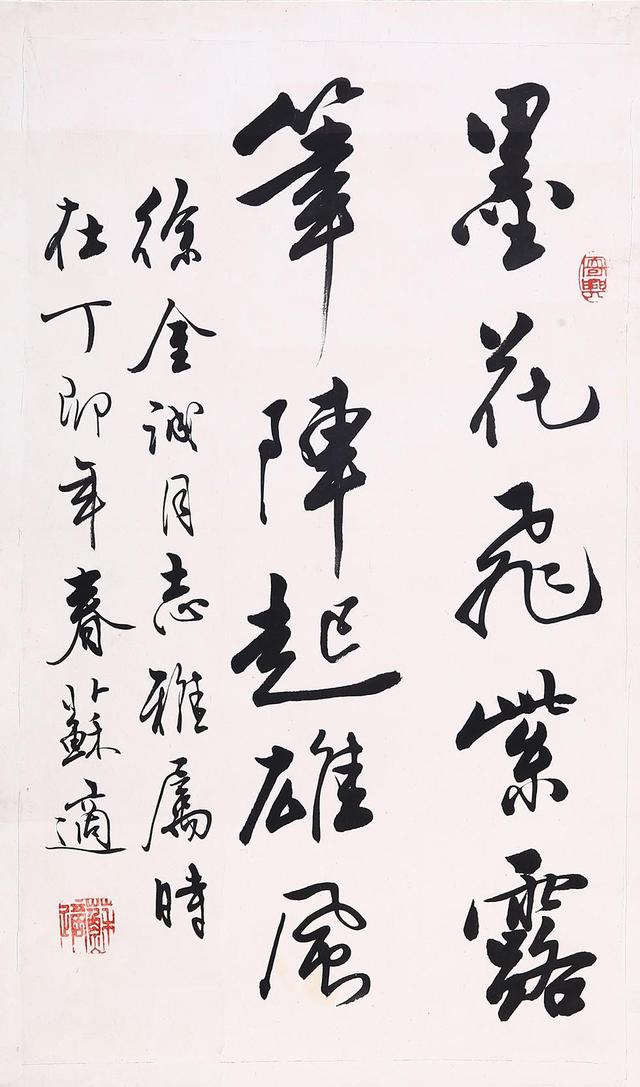 墨花飛紫露
筆陣起雄風
徐金誠同志雅屬時
在丁卯年春蘇適
蘇適